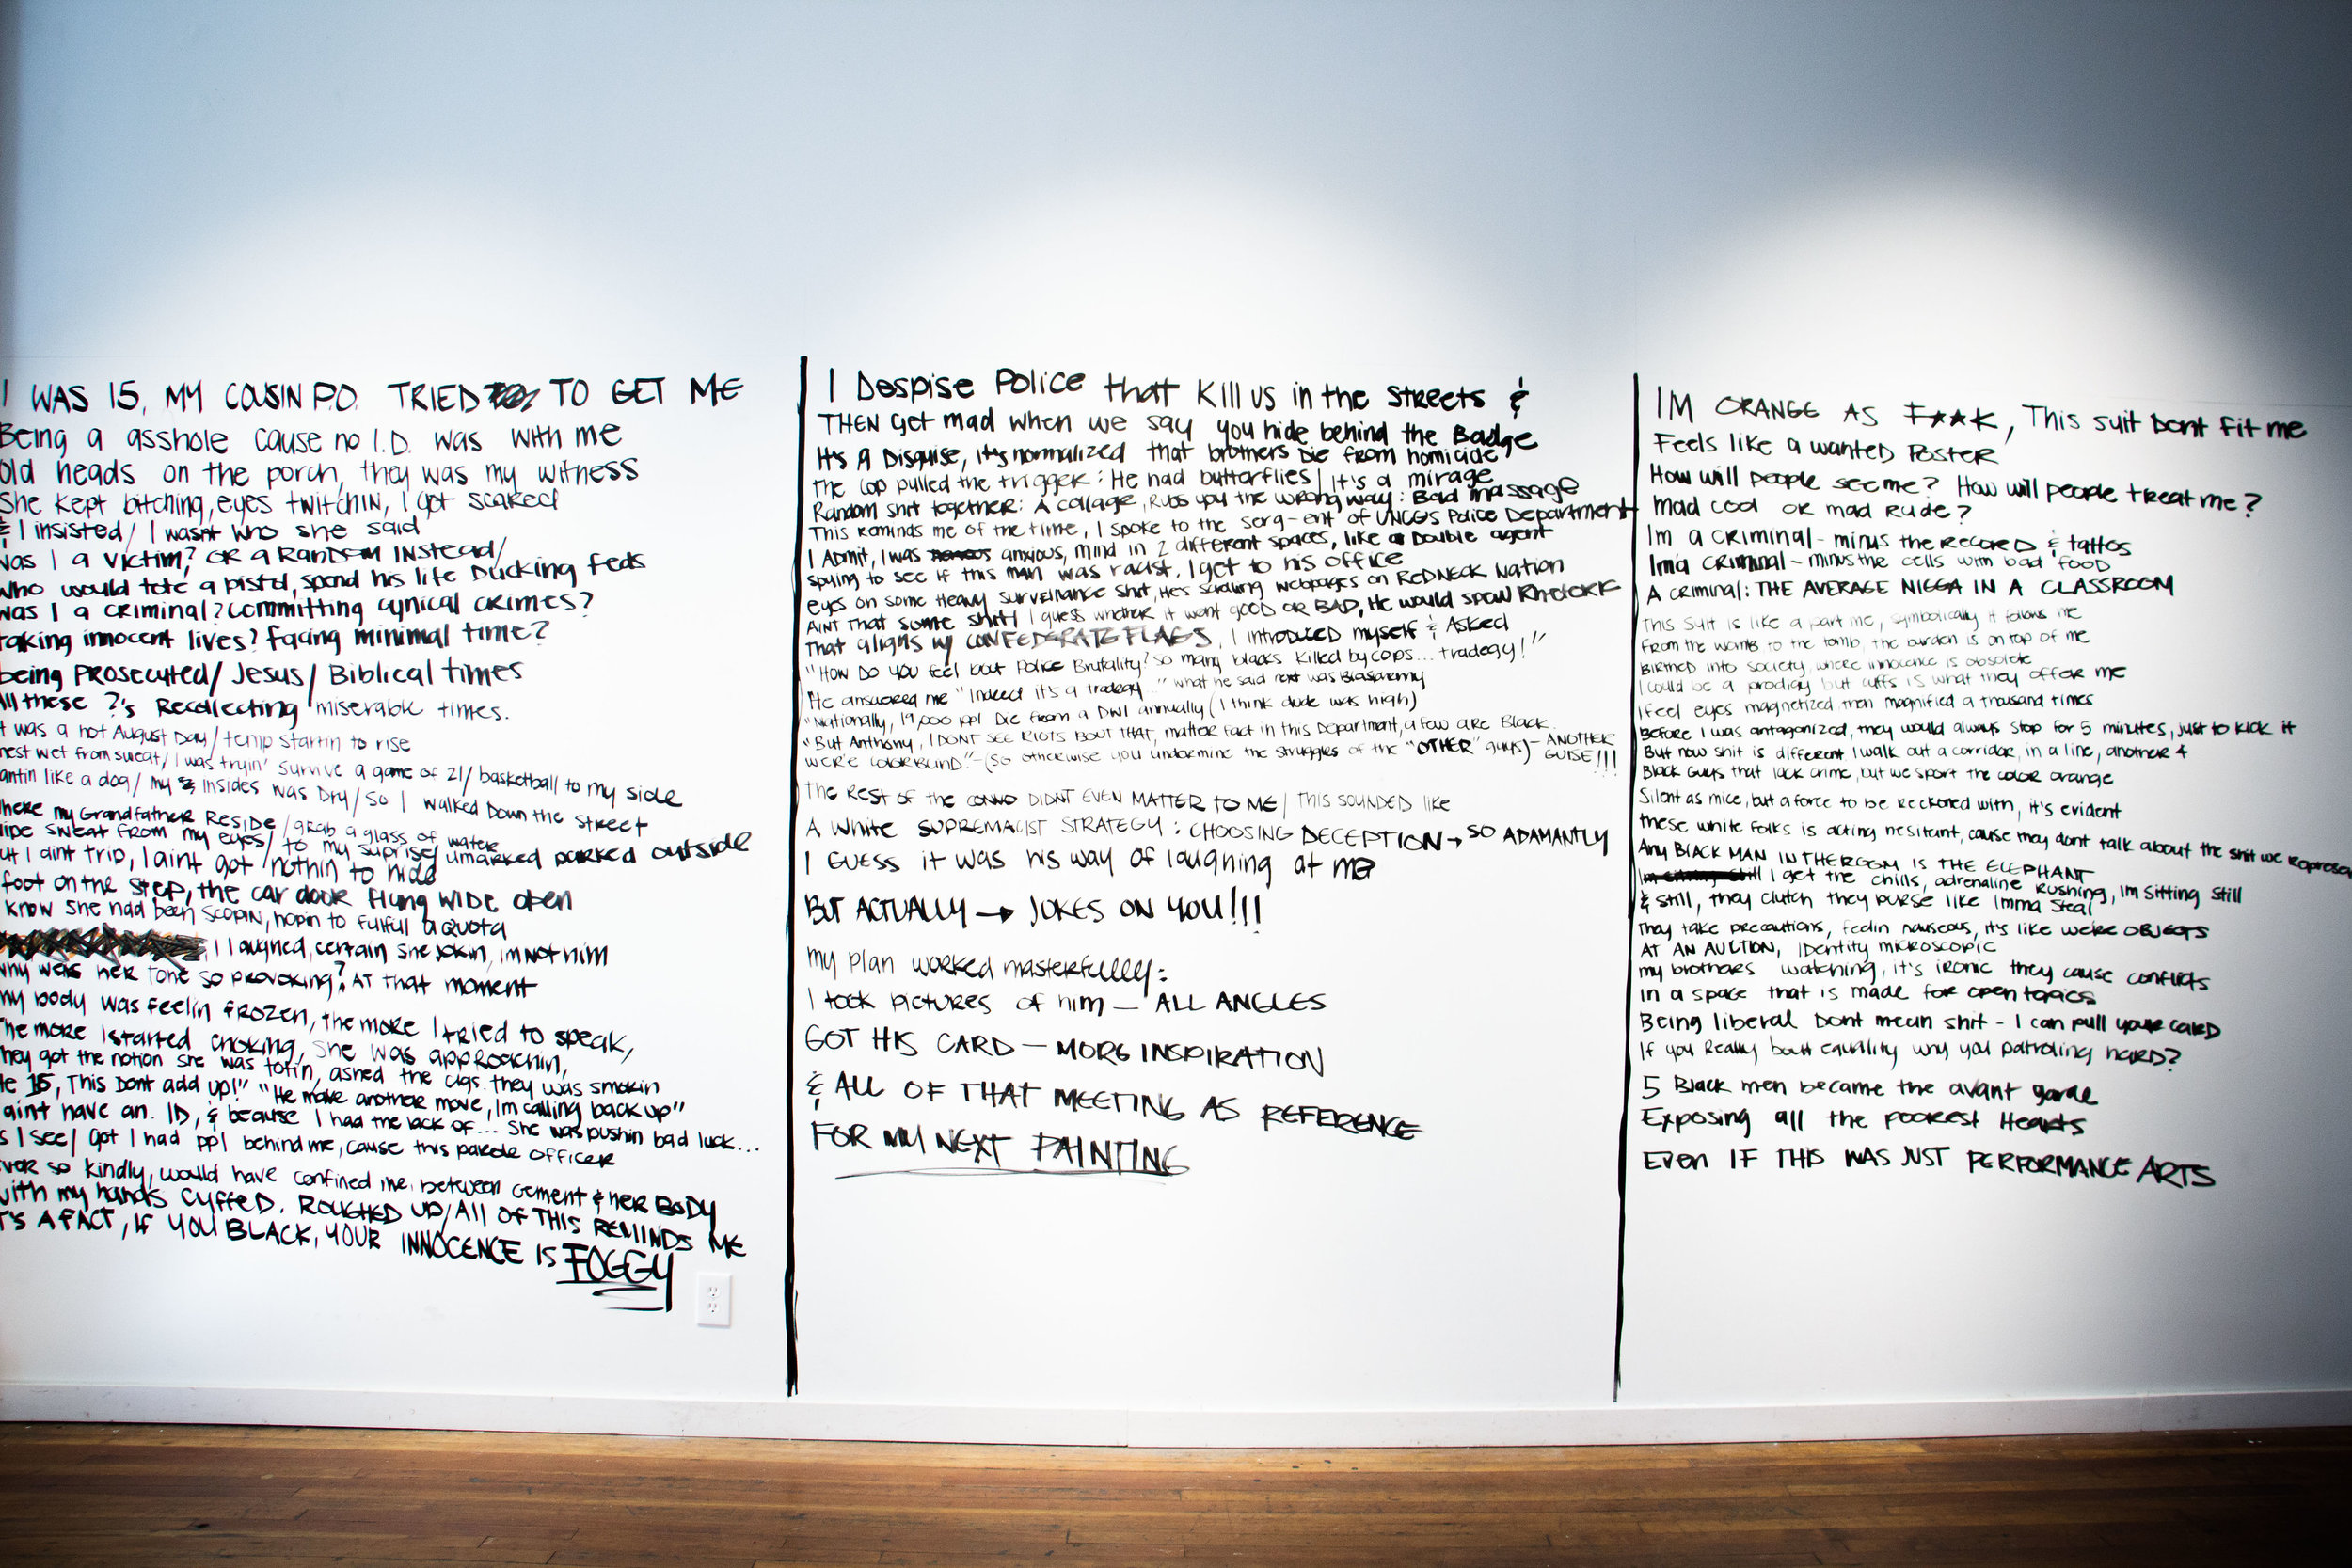 I WAS 15, MY COUSIN P.O. TRIED TO GET ME
Being a asshole cause no I.D. was with me
Old heads on the porch, they was my witness
She kept bitching, eyes twitchin, I got scared
& I insisted/ I wasnt who she said
was I a victim? OR a RANDOM INSTEAD/
Who would tote a pistol, spend his life Ducking feds
was I a criminal? committing cynical crimes?
taking innocent lives? facing minimal time?
being PROSECUTED/ Jesus/ Biblical times
All these ?'s Recollecting miserable times.
it was a hot August Day/ temp startin to rise
wet from sweat/ I was tryin' survive a game of 21/ basketball to my side
pantin like a dog/ my insides was Dry/ so I walked Down the street
where my Grandfather Reside/ grab a glass of water
wipe sweat from my eyes/ to my suprise/ umarked parked outside
but I dint trip, I aint got nothin to hide
foot on the step, the car door flung wide open
I know she had been scopin, hopin to fulfull a quota
I laughed, certain she jokin, im not him
why was her tone so provoking? AT that moment
my body was feelin frozen, the more I tried to speak,
The more I started choking, she was approachin,
they got the notion she was totin, ashed the cigs they was smokin
He 15, This Dont add up!" "He make another move, Im calling back up"
I aint have an. ID, & because I had the lack of... She was pushin bad luck...
as I see/ got I had ppl behind me, cause this parole officer
ever so kindly, would have confined me, between cement & her BODY
with my hands cuffed. ROUGHED UP/ All OF THIS REMINDS ME
IT'S A FACT, IF YOU BLACK, YOUR INNOCENCE IS FOGGY
I Despise Police that Kill us in the streets &
THEN get mad when we say you hide behind the Badge
It's A Disguise, it's normalized that brothers Die from homicide
The cop pulled the trigger: He had butterflies/ It's a mirage
Random shit together: A collage, Rubs you the wrong way: Bad massage
This reminds me of the time, I spoke to the serg-ent of UNCG's Police Department
I Admit, I was anxious, mind in 2 different spaces, like a Double agent
spying to see if this man was racist. I get to his office
eyes on some Heavy surveillance shit, He's scrolling webpages on REDNECK Nation
AINT that some shit! I guess whether it went good OR BAD, He would spew Rhetorik
That aligns w/ CONFEDERATE FLAGS, I introduced myself & Asked
"How Do you feel bout Police Brutality? so many blacks killed by cops... tradegy!"
He answered me "Indeed it's a tradegy..." what he said next was Blasphemy
"Nationally, 19,000 ppl Die from a DWI annually (I think dude was high)
"But Anthony, I DONT SEE RIOTS BOUT THAT, matter fact in this Department, a few are Black.
WE'RE COLORBLIND" - (SO otherwise you undermine the struggles of the "OTHER" guys) - ANOTHER GUISE!!!
THE REST OF THE CONVO DIDNT EVEN MATTER TO ME/ THIS SOUNDED like
A White SUPREMACIST STRATEGY: CHOOSING DECEPTION → SO ADAMANTLY
I GUESS it was his way of laughing at me
BUT ACTUALLY → JOKES ON YOU!!!
my plan worked masterfully:
I took pictures of him — ALL ANGLES
GOT HIS CARD — MORE INSPIRATION
& ALL OF THAT MEETING AS REFERENCE
FOR MY NEXT PAINTING
IM ORANGE AS F**K, This suit Dont fit me
Feels like a wanted Poster
How will people see me? How will people treat me?
Mad cool or mad Rude?
Im a criminal - minus the RECORD & tattos
Im a criminal - minus the cells with bad food
A criminal: THE AVERAGE NIGGA IN A CLASSROOM
This suit is like a part me, symbolically it follows me
From the womb to the tomb, the burden is on top of me
Birthed into society, where innocence is obsolete
I could be a prodigy but cuffs is what they offer me
I feel eyes magnetized then magnified a thousand times
Before I was antagonized, they would always stop for 5 minutes, just to kick it
But now shit is different I walk out a corridor, in a line, another 4
Black Guys that lack crime, but we sport the color orange
Silent as mice, but a force to be reckoned with, it's evident
these white folks is acting hesitant, cause they dont talk about the shit we represent
Any BLACK MAN IN THE ROOM IS THE ELEPHANT
I get the chills, adrenaline rushing, Im sitting still
& still, they clutch they purse like Imma steal
They take precautions, feelin nauseous, it's like we're OBJECTS
AT AN AUCTION, Identity microscopic
my brothers watching, it's ironic they cause conflicts
In a space that is made for open topics
Being liberal Dont mean shit - I can pull your card
If you Really bout equality why you patroling hard?
5 Black men became the avant garde
Exposing all the poorest Hearts
Even IF THIS WAS JUST PERFORMANCE ARTS